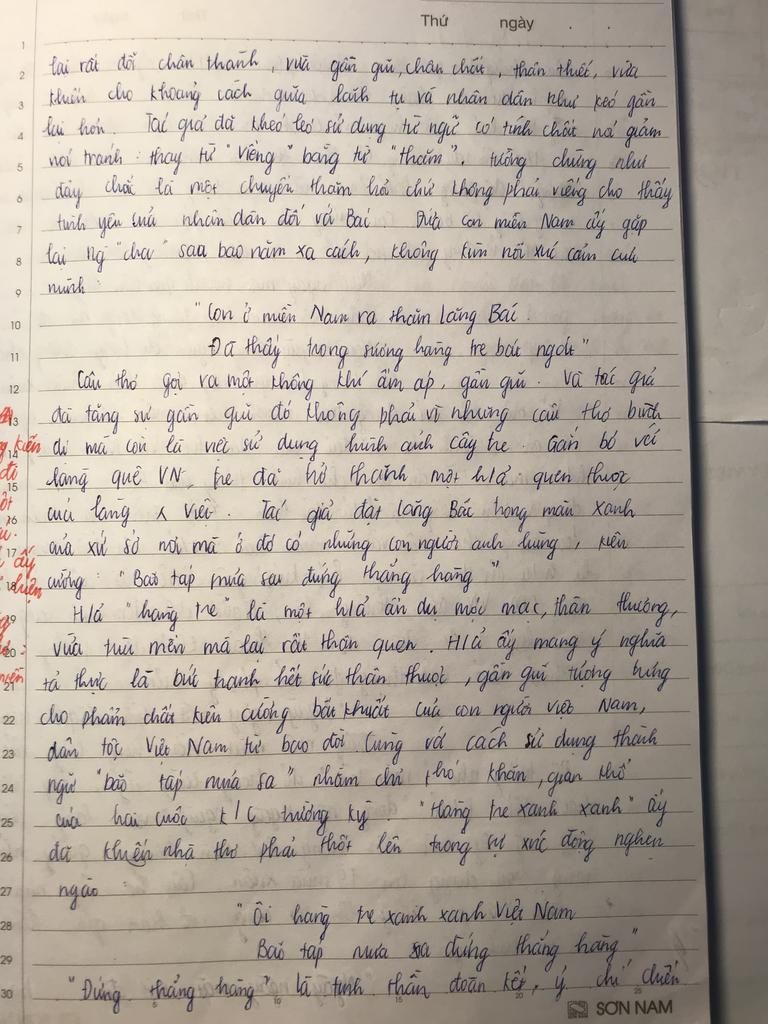 Thứ ngày . .
lại rất đỗi chân thành, vừa gần gũi, chân chất, thân thiết, vừa
khiến cho khoảng cách giữa lãnh tụ và nhân dân như kéo gần
lại hơn. Tác giả đã khéo léo sử dụng từ ngữ có tính chất nói giảm
nói tránh: thay từ "viếng" bằng từ "thăm", tưởng chừng như
đây chắc là một chuyến thăm hỏi chứ không phải viếng cho thấy
tình yêu của nhân dân đối với Bác. Đứa con miền Nam ấy gặp
lại ng "cha" sau bao năm xa cách, không kìm nổi xúc cảm của
mình:
"Con ở miền Nam ra thăm lăng Bác
Đã thấy trong sương hàng tre bát ngát"
Câu thơ gợi ra một không khí ấm áp, gần gũi. Và tác giả
đã tăng sự gần gũi đó không phải vì những câu thơ bình
dị mà còn là việc sử dụng hình ảnh cây tre. Gắn bó với
làng quê VN, tre đã trở thành một h/ả quen thuộc
của làng x Việt. Tác giả đặt lăng Bác trong màu xanh
của xứ sở nơi mà ở đó có những con người anh hùng, kiên
cường: "Bão táp mưa sa đứng thẳng hàng"
H/ả "hàng tre" là một h/ả ẩn dụ mộc mạc, thân thương,
vừa trìu mến mà lại rất thân quen. H/ả ấy mang ý nghĩa
tả thực là bức tranh hết sức thân thuộc, gần gũi tượng trưng
cho phẩm chất kiên cường bất khuất của con người Việt Nam,
dân tộc Việt Nam từ bao đời. Cùng với cách sử dụng thành
ngữ "bão táp mưa sa" nhằm chỉ khó khăn, gian khổ
của hai cuộc k/c trường kỳ. "Hàng tre xanh xanh" ấy
đã khiến nhà thơ phải thốt lên trong sự xúc động nghẹn
ngào:
"Ôi hàng tre xanh xanh Việt Nam
Bão táp mưa sa đứng thẳng hàng"
"Đứng thẳng hàng" là tinh thần đoàn kết, ý chí chiến
SƠN NAM